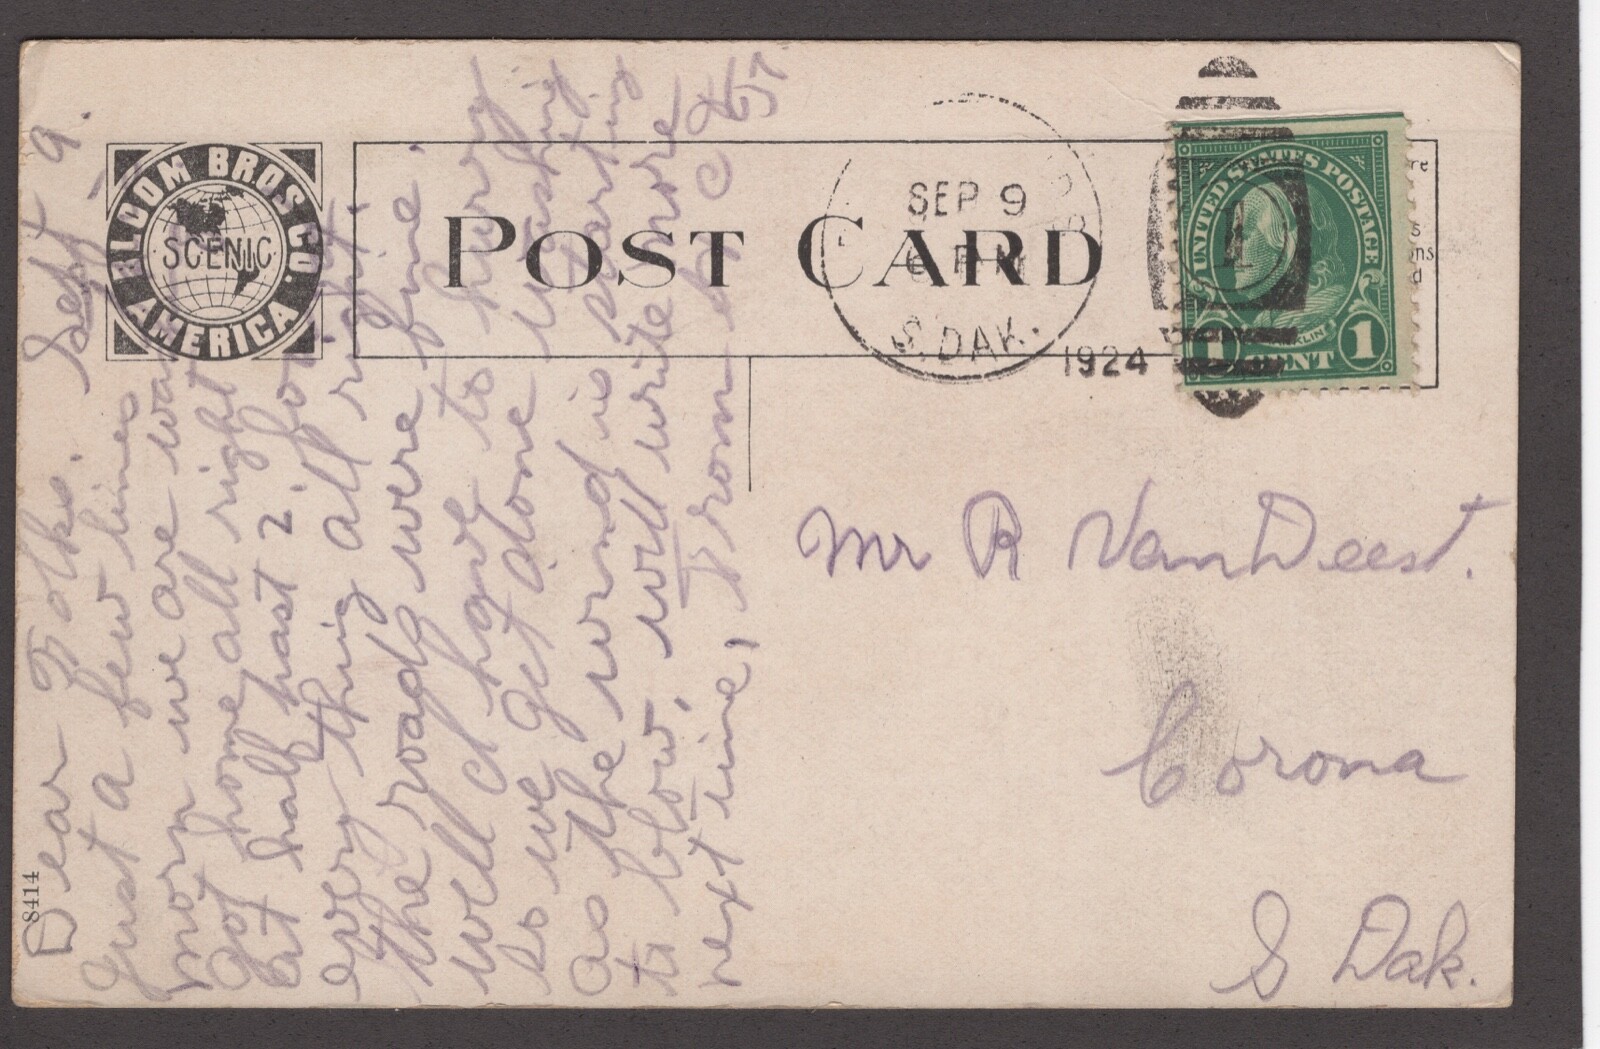 BLOOM BROS CO.
SCENIC
AMERICA
POST CARD
SEP 9
6 PM
S. DAK.
1924
UNITED STATES POSTAGE
1
FRANKLIN
1 CENT 1
8414
Dear Folks. Sept 9.
Just a few lines
morn we are
got home all right
at half past 2.
every thing all right.
the roads were fine.
well I have to hurry
so we get done washing
as the wind is starting
to blow, will write more
next time, From
Mr R VanDeest.
Corona
S Dak.